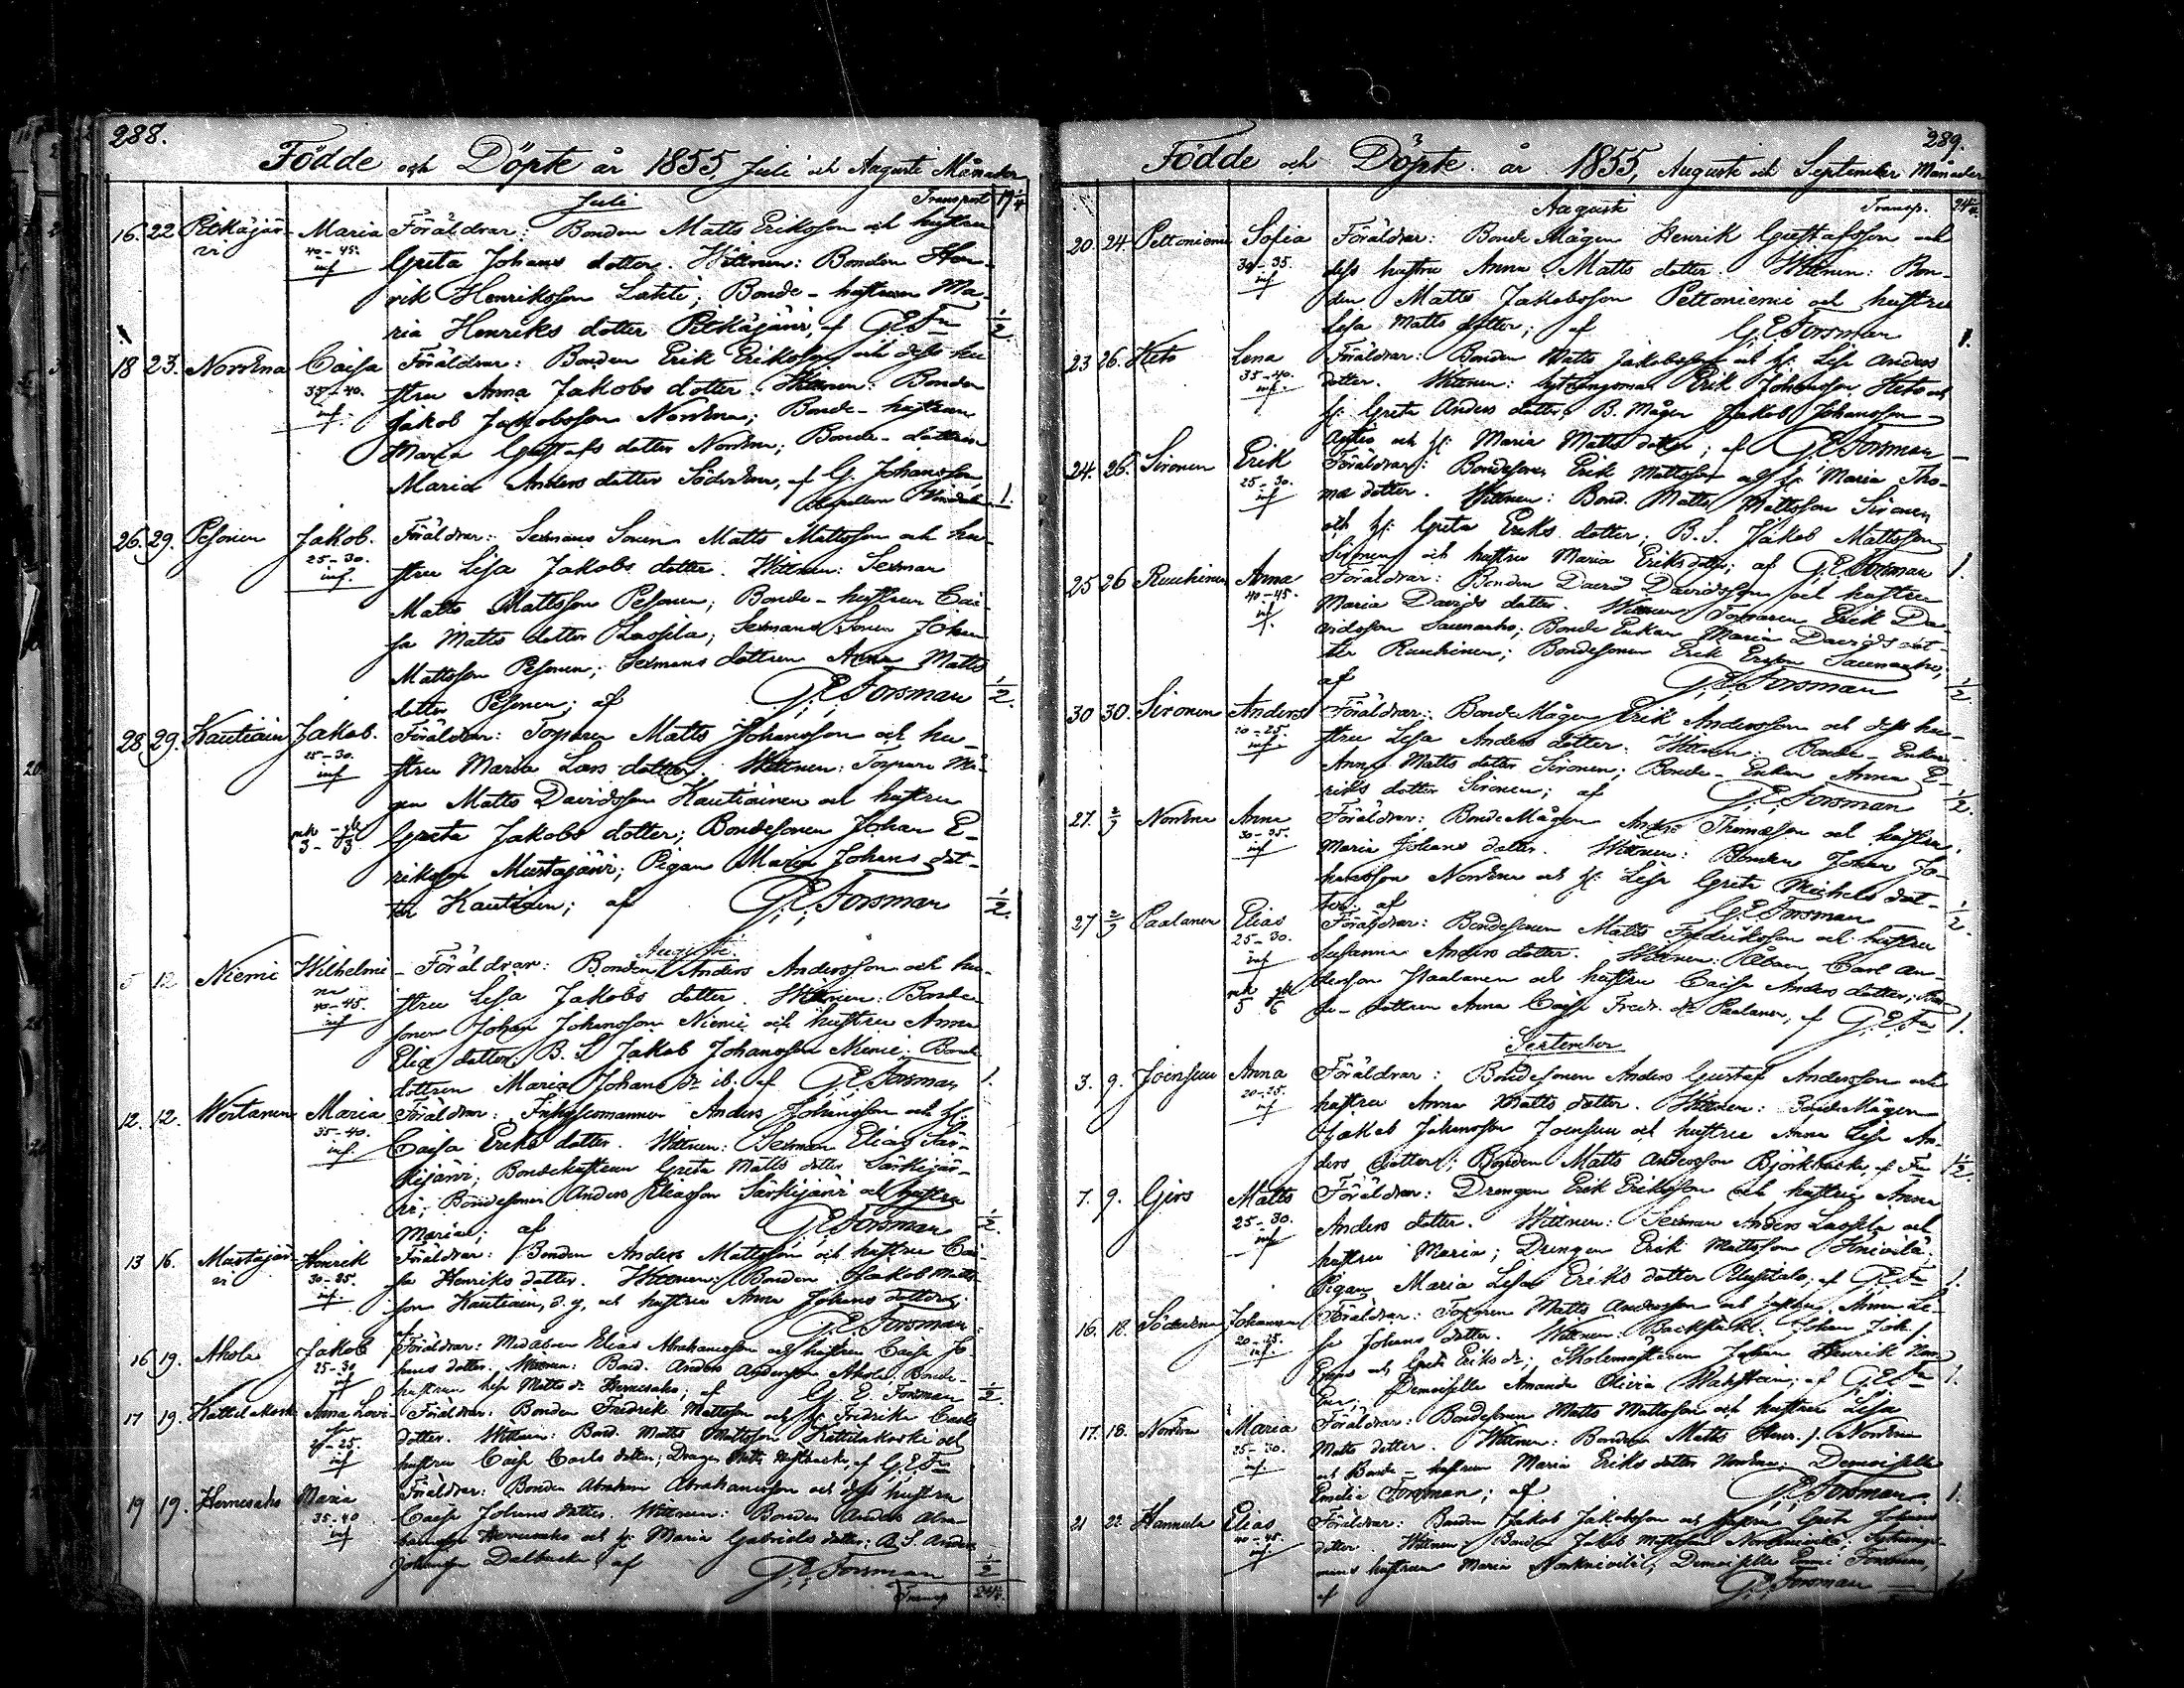 288.
Födde och Döpte år 1855, Juli och Augusti Månader
Juli Transport 17 1/4
16. 22 Pitkäjär- Maria Föräldrar: Bonden Matts Eriksson och hustru
vi 40-45. inf Greta Johans dotter. Wittnen: Bonden Hen-
rik Henriksson Lahti; Bonde-hustrun Ma-
ria Henriks dotter Pitkäjärvi, af G.E.Fn 1/2
18 23. Norrena Caisa Föräldrar: Bonden Erik Eriksson och dess hu
35-40. inf. stru Anna Jakobs dotter. Wittnen: Bonden
Jakob Jakobsson Norrena; Bonde-hustrun
Maria Gustafs dotter Norrena; Bonde-dottren
Maria Anders dotter Söderena, af G. Johansson,
Capellan i 1.
26. 29. Pesonen Jakob. Föräldrar: Sexmans Sonen Matts Mattsson och hu-
25-30. inf. stru Lisa Jakobs dotter. Wittnen: Sexman
Matts Mattsson Pesonen; Bonde-hustrun Cai-
sa Matts dotter Luospla; Sexmans Sonen Johan
Mattsson Pesonen; Sexmans dottren Anna Matts
dotter Pesonen; af G.E.Forsman 1/2.
28. 29. Kautiain Jakob. Föräldrar: Torparen Matts Johansson och hu-
25-30. inf stru Maria Lars dotter. Wittnen: Torpare Må-
gen Matts Davidsson Kautiainen och hustru
Greta Jakobs dotter; Bondesonen Johan E-
riksson Mustajärvi; Pigan Maria Johans dot-
ter Kautiain; af G.E.Forsman 1/2.
Augusti.
5 12 Niemi Wilhelmi- Föräldrar: Bonden Anders Andersson och hu-
na 40-45. inf stru Lisa Jakobs dotter. Wittnen: Bonde
sonen Johan Johansson Niemi och hustru Anna
Elia dotter; B.S. Jakob Johansson Niemi; Bonde
dottren Maria Johans dr ib. af G.E.Forsman 1.
12. 12. Wertanen Maria Föräldrar: Inhysesmannen Anders Johansson och h:
35-40. inf. Caisa Eriks dotter. Wittnen: Sexman Elias Sär-
kijärvi; Bondehustrun Greta Matts dotter Särkijär-
vi; Bondesonen Anders Eliasson Särkijärvi och hustru
Maria; af G.E.Forsman 1/2.
13 16. Mustajär- Henrik Föräldrar: Bonden Anders Mattsson och hustru Cai-
vi inf. sa Henriks dotter. Wittnen: Bonden Jakob Matts-
son Kautiain, d.y, och hustru Anna Johans dotter
af G.E.Forsman.
16 19. Ahola Jakob Föräldrar: Elias Abrahamsson och hustru Caisa Jo-
25-30 inf hans dotter. Wittnen: Bond. Anders Andersson Ahola. Bonde-
hustrun Lisa Matts dr Hernesaho; af G.E.Forsman 1/2.
17 19. Kattilakoski Anna Lovi- Föräldrar: Bonden Fredrik Mattsson och h: Fredrika Carls
sa inf dotter. Wittnen: Bond. Matts Mattsson Kattilakoski och
hustru Caisa Carls dotter; Drängen Matts af G.E.Fn
19 19. Hernesaho Maria Föräldrar: Bonden Abraham Abrahamsson och dess hustru
35-40 inf Caisa Johans dotter. Wittnen: Bonden Anders Abra-
hamsson Hernesaho och h: Maria Gabriels dotter; B.S. Anders
Johansson Dalbacka, af G.E.Forsman 1/2
Transp 24 1/4.
289.
Födde och Döpte år 1855, Augusti och September Månader
Augusti Transp. 24 1/4.
20. 24. Peltoniemi Sofia Föräldrar: Bonde Mågen Henrik Gustafsson och
30-35. inf dess hustru Anna Matts dotter. Wittnen: Bon-
den Matts Jakobsson Peltoniemi och hustru
Lisa Matts dotter; af G.E.Forsman 1.
23 26. Keto Lena Föräldrar: Bonden Matts Jakobsson och h: Lisa Anders
35-40. inf. dotter. Wittnen: Sytningsman Erik Johansson Keto och
h: Greta Anders dotter; B. Mågen Jakob Johansson
och h: Maria Matts dotter; af G.E.Forsman —
24. 26. Sironen Erik Föräldrar: Bondesonen Erik Mattsson och h: Maria Tho-
25-30. inf mæ dotter. Wittnen: Bond. Matts Mattsson Sironen
och h: Greta Eriks dotter; B.S. Jakob Mattsson
Sironen och hustru Maria Eriks dotter; af G.E.Forsman 1.
25 26 Ruuhinen Anna Föräldrar: Bonden David Davidsson och hustru
40-45. inf. Maria Davids dotter. Wittnen: Torparen Erik Da-
vidsson Saunaaho; Bonde Enkan Maria Davids dot-
ter Ruuhinen; Bondesonen Erik Ersson Saunaaho;
af G.E.Forsman 1/2
30 30. Sironen Anders Föräldrar: Bonde Mågen Erik Andersson och dess hu-
20-25. inf. stru Lisa Anders dotter. Wittnen: Bonde-Enkan
Anna Matts dotter Sironen; Bonde-Enkan Anna E-
riks dotter Sironen; af G.E.Forsman 1/2.
27. 2/9 Norrena Anna Föräldrar: Bonde Mågen Anders Thomasson och hustru
30-35. inf Maria Johans dotter. Wittnen: Bonden Johan Jo-
hansson Norrena och h: Lisa Greta Michels dot-
ter; af G.E.Forsman 1/2.
27 2/9 Paalanen Elias Föräldrar: Bondesonen Matts Fredriksson och hustru
25-30. inf Susanna Anders dotter. Wittnen: Åboen Carl An-
dersson Paalanen och hustru Caisa Anders dotter; Bon-
de-dottren Anna Caisa Fredr. dr Paalanen, af G.E.Fn 1.
September
3. 9. Joensuu Anna Föräldrar: Bondesonen Anders Gustaf Andersson och
20-25. inf hustru Anna Matts dotter. Wittnen: Bonde Mågen
Jakob Johansson Joensuu och hustru Anna Lisa An-
ders dotter; Bonden Matts Andersson Björkbacka, af Fn 1/2.
7. 9. Girs Matts Föräldrar: Drengen Erik Eriksson och hustru Anna
25-30. inf Anders dotter. Wittnen: Sexman Anders Luospla och
hustru Maria; Drengen Erik Mattsson Knivilä;
Pigan Maria Lisa Eriks dotter; af G.E.Fn 1.
16. 18. Söderena Johannes Föräldrar: Torparen Matts Andersson och hustru Anna Li-
20-25. inf. sa Johans dotter. Wittnen: Johan Joh.
och Greta Eriks dr; Skolemästaren Johan Henrik
Demoiselle Amanda Olivia; af G.E.Fn 1.
17. 18. Norrena Maria Föräldrar: Bondesonen Matts Mattsson och hustru Lisa
25-30. inf. Matts dotter. Wittnen: Bonden Matts Henr. s. Norrena
och Bonde-hustrun Maria Eriks dotter Norrena; Demoiselle
Emelie Forsman; af G.E.Forsman. 1.
21 22 Hannula Elias Föräldrar: Bonden Jakob Jakobsson och hustru Greta Johans
40-45. inf dotter. Wittnen: Bonden Jakob Mattsson; Sytnings-
mans hustrun Maria; Demoiselle Emmi Forsman,
af G.E.Forsman